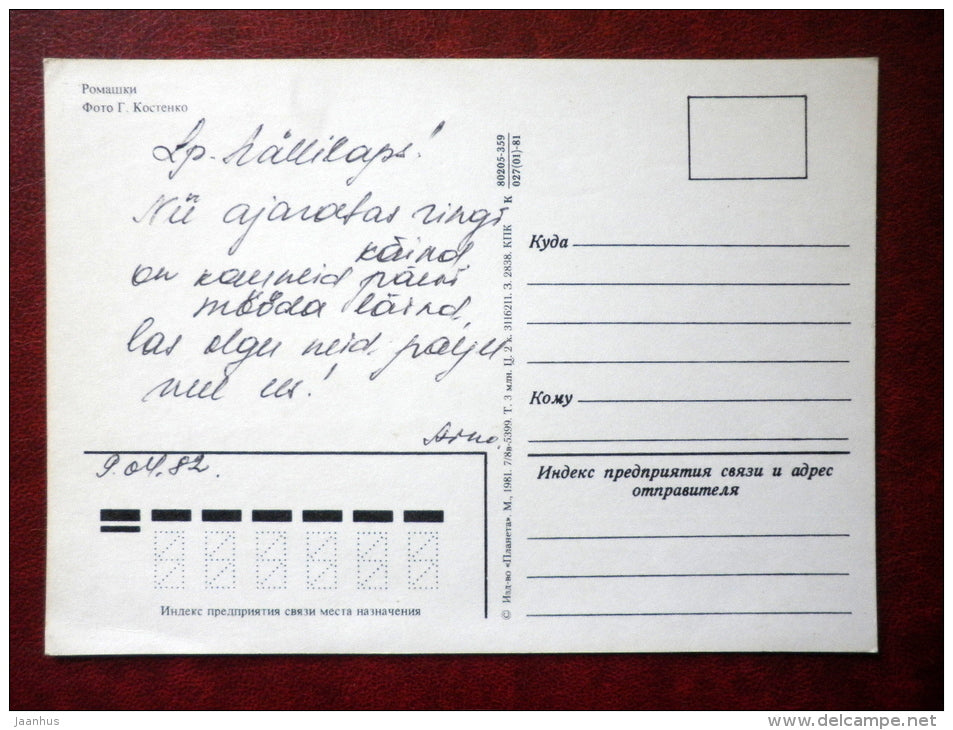 Ромашки
Фото Г. Костенко
Lp. Hällilaps!
Nii ajaratas ringi
käind
on kauneid päevi
mööda läind,
las olgu neid palju
veel ees!
Arno.
9.04.82.
Индекс предприятия связи места назначения
© Изд-во «Планета». М., 1981. 7/8в-5399. Т. 3 млн. Ц. 2 к. 3116211. З. 2838. КПК К 80205-359
027(01)-81
Куда
Кому
Индекс предприятия связи и адрес
отправителя
jaanhus
www.delcampe.net